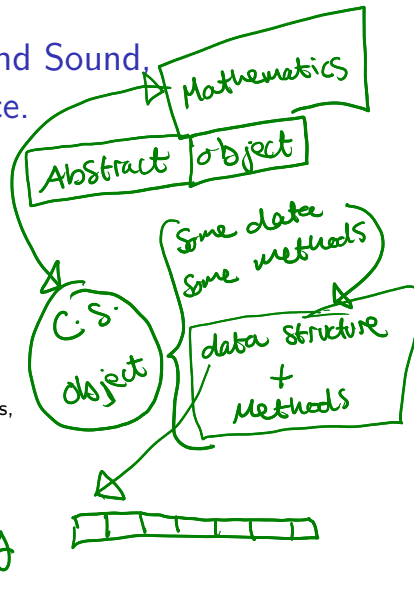 nd Sound,
ce.
Mathematics
Abstract object
Some data
Some methods
C.S.
object
data structure
+
Methods
s,